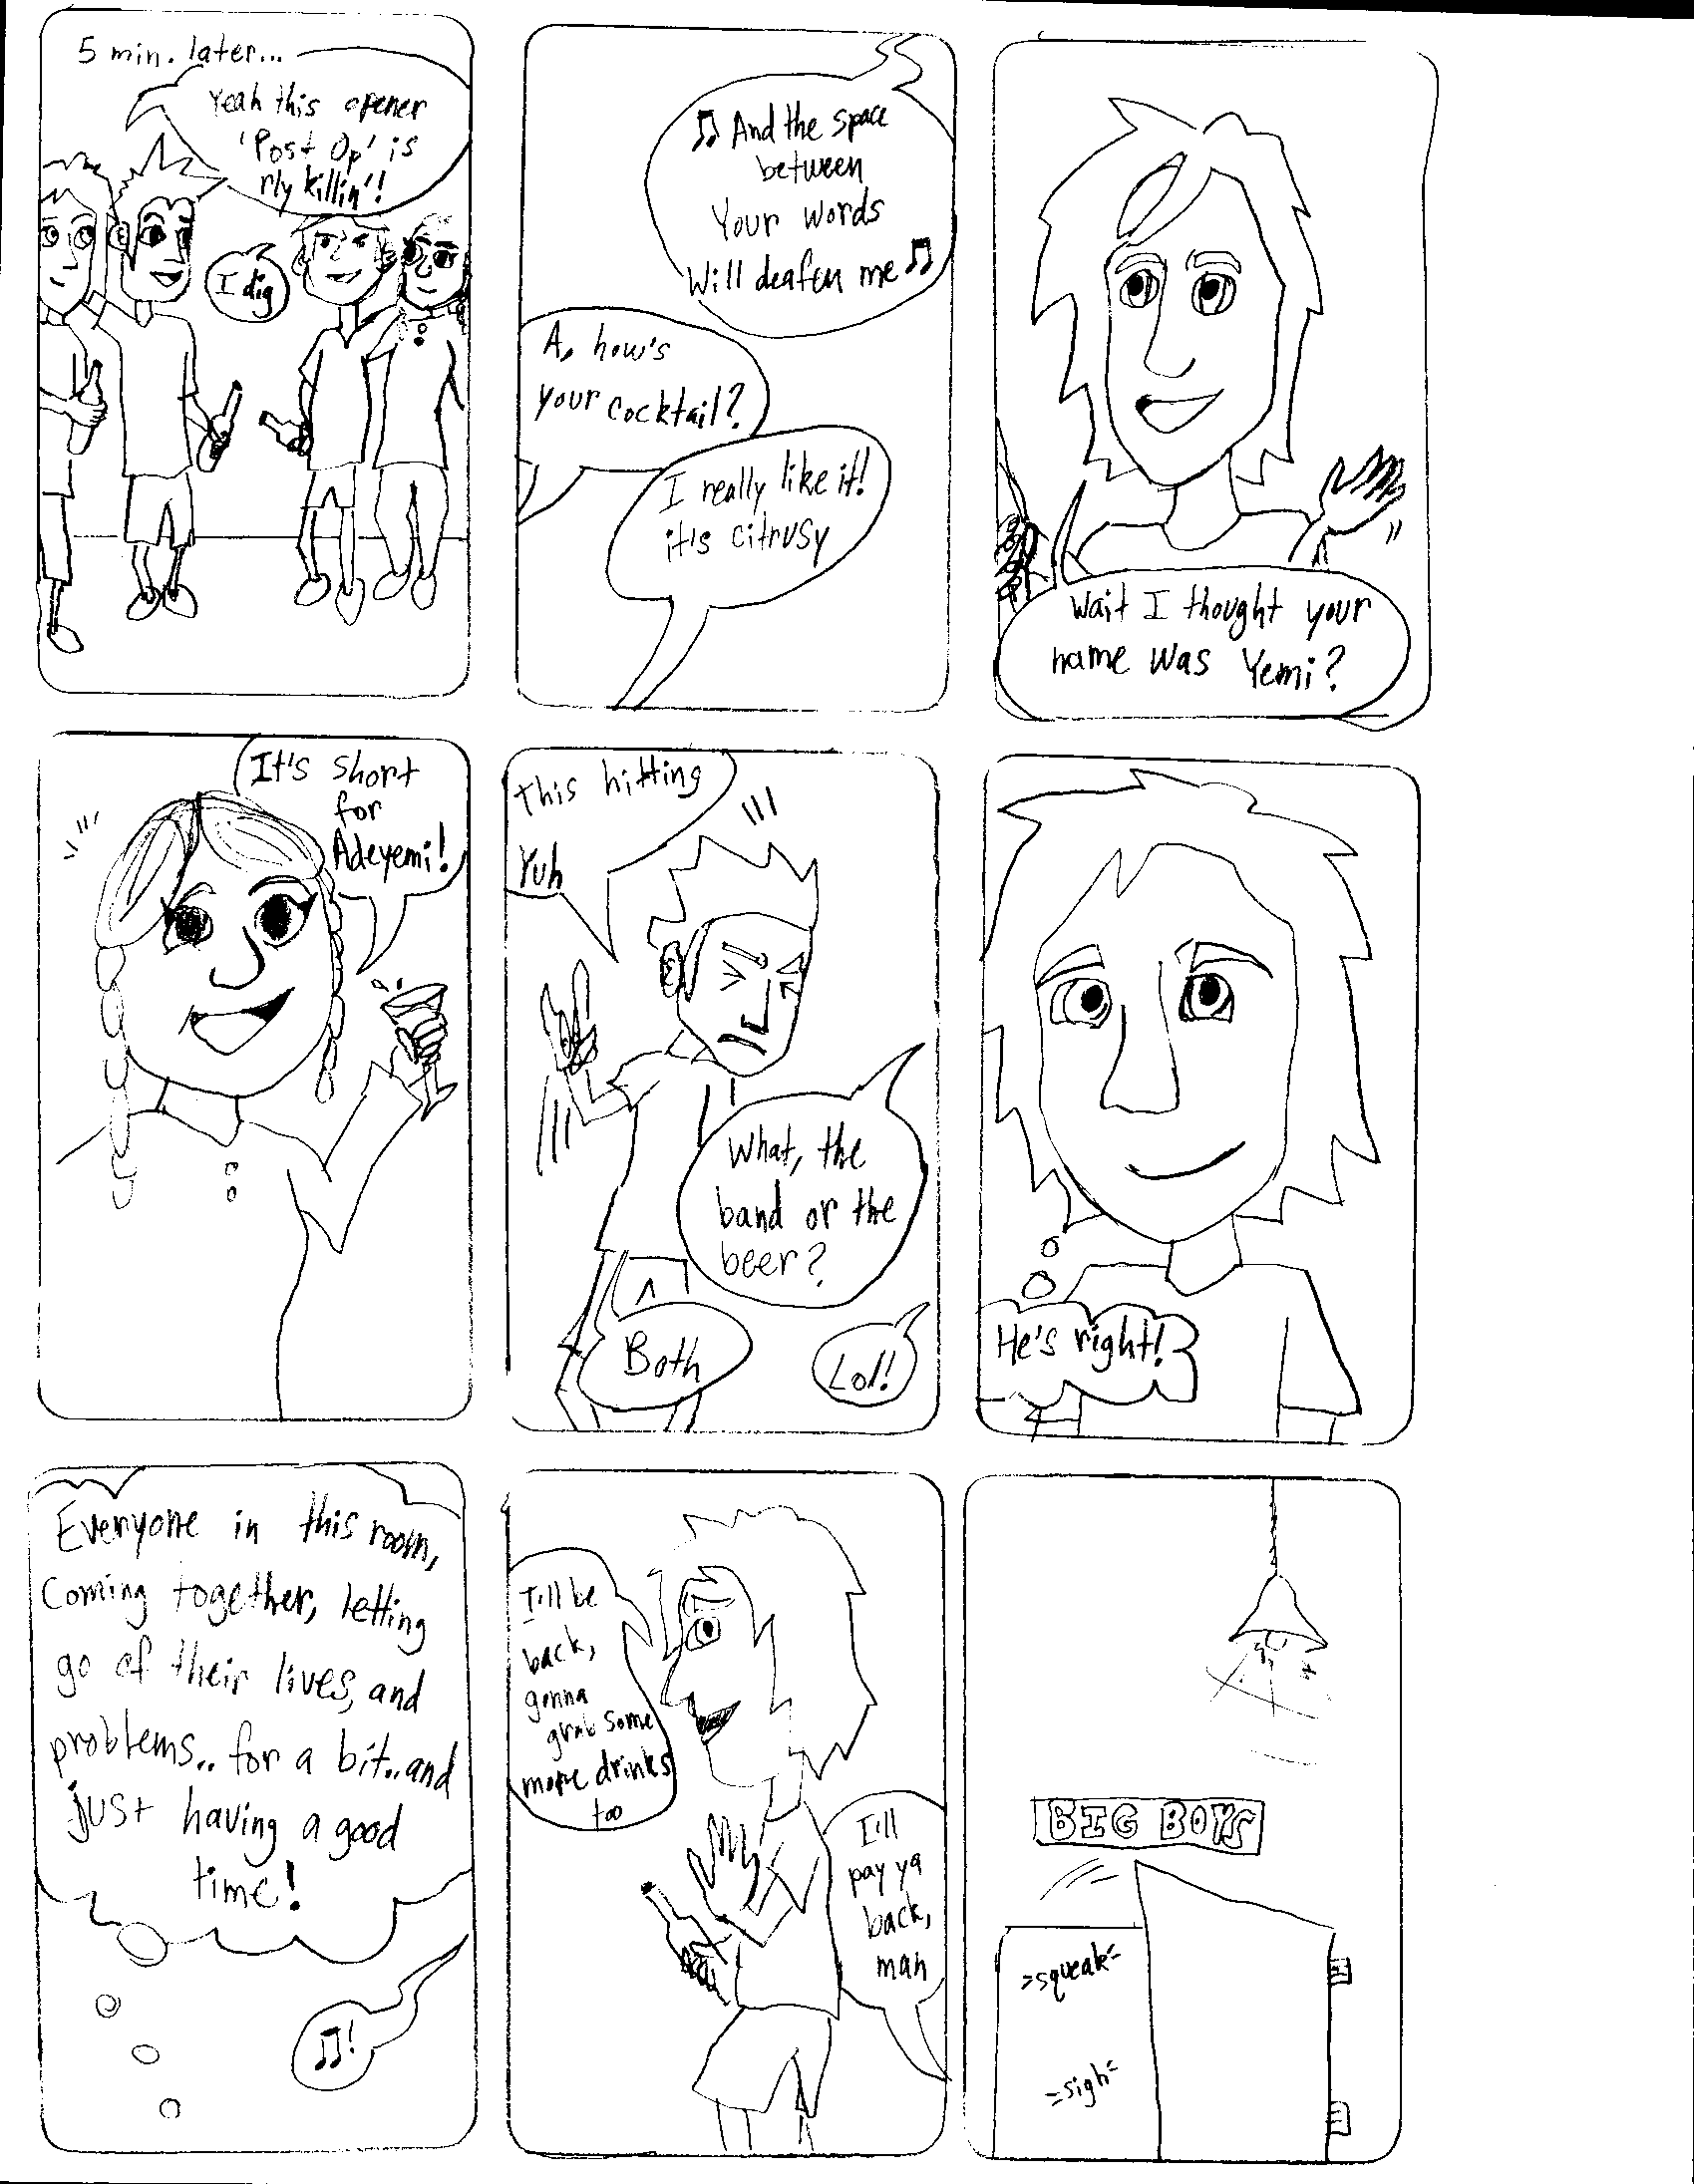 5 min. later...
Yeah this opener
'Post Op' is
rly killin'!
I dig
♫ And the space
between
Your words
Will deafen me ♫
A, how's
your cocktail?
I really like it!
it's citrusy
Wait I thought your
name was Yemi?
It's short
for
Adeyemi!
This hitting
Yuh
What, the
band or the
beer?
Both
Lol!
He's right!
Everyone in this room,
Coming together, letting
go of their lives, and
problems.. for a bit.. and
just having a good
time!
♫!
I'll be
back,
gonna
grab some
more drinks
too
I'll
pay ya
back,
man
BIG BOYS
=squeak=
=sigh=